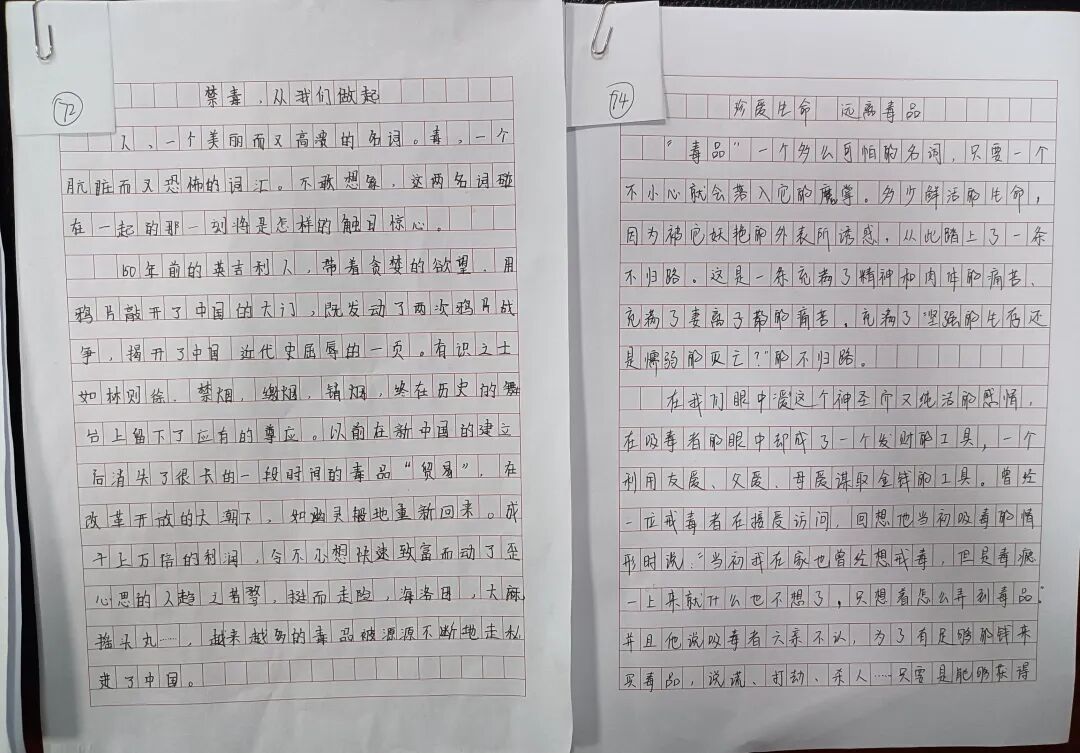 72
禁毒，从我们做起
人，一个美丽而又高贵的名词。毒，一个
肮脏而又恐怖的词汇。不敢想象，这两名词碰
在一起的那一刻将是怎样的触目惊心。
150年前的英吉利人，带着贪婪的欲望，用
鸦片敲开了中国的大门，既发动了两次鸦片战
争，揭开了中国 近代史屈辱的一页。有识之士
如林则徐．禁烟，缴烟，销烟，终在历史的舞
台上留下了应有的尊应。以前在新中国的建立
后消失了很长的一段时间的毒品“贸易”，在
改革开放的大潮下，如幽灵般地重新回来。成
千上万倍的利润，令不小想快速致富而动了歪
心思的人趋之若鹜，挺而走险，海洛因，大麻，
摇头丸……，越来越多的毒品被源源不断地走私
进了中国。
74
珍爱生命 远离毒品
“毒品”一个多么可怕的名词，只要一个
不小心就会落入它的魔掌。多少鲜活的生命，
因为被它妖艳的外表所诱惑，从此踏上了一条
不归路。这是一条充满了精神和肉体的痛苦、
充满了妻离子散的痛苦，充满了“坚强的生存还
是懦弱的灭亡？”的不归路。
在我们眼中爱这个神圣而又纯洁的感情，
在吸毒者的眼中却成了一个发财的工具，一个
利用友爱、父爱、母爱谋取金钱的工具。曾经
一位戒毒者在接受访问，回想他当初吸毒的情
形时说：“当初我在家也曾经想戒毒，但是毒瘾
一上来就什么也不想了，只想着怎么弄到毒品。
并且他说吸毒者六亲不认，为了有足够的钱来
买毒品，说谎、打劫、杀人……只要是能够获得